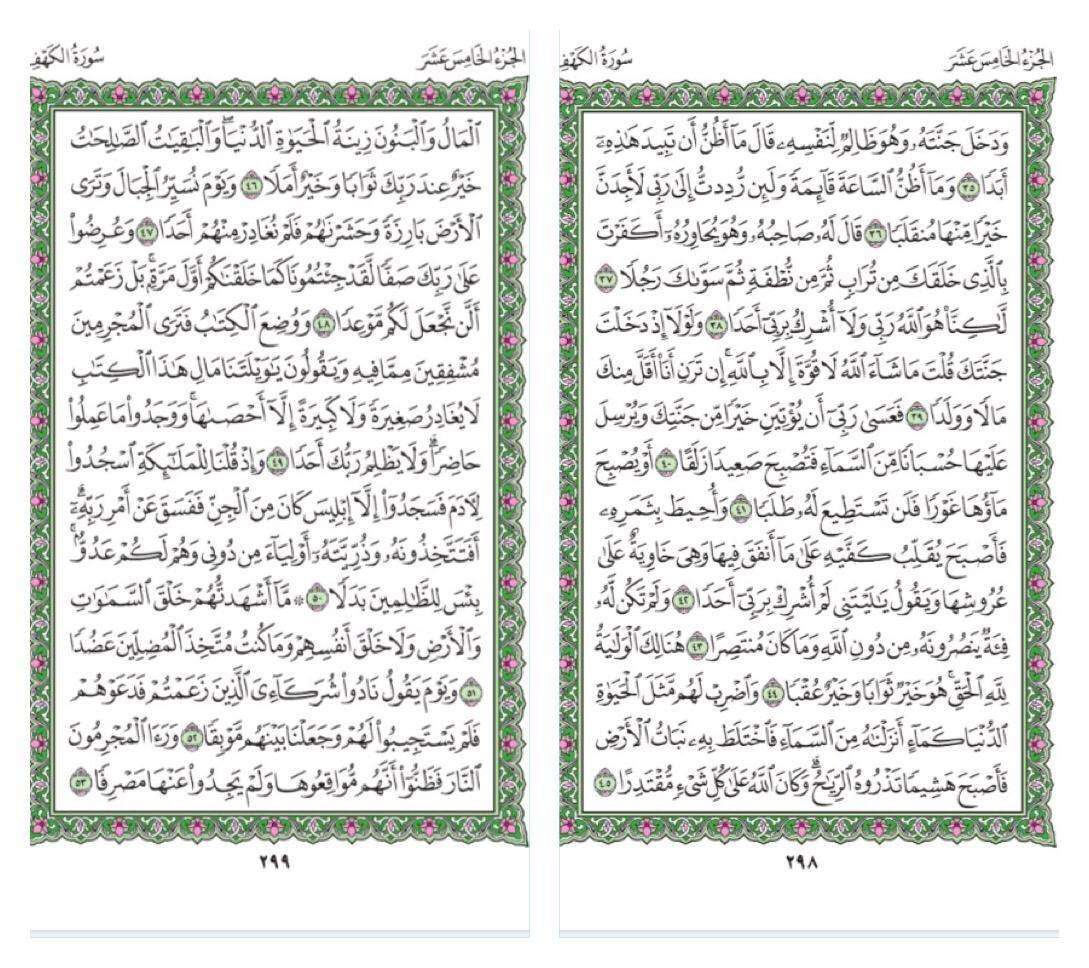 الجزء الخامس عشر
سورة الكهف
وَدَخَلَ جَنَّتَهُۥ وَهُوَ ظَالِمٌ لِّنَفْسِهِۦ قَالَ مَآ أَظُنُّ أَن تَبِيدَ هَٰذِهِۦٓ
أَبَدًا ٣٥ وَمَآ أَظُنُّ ٱلسَّاعَةَ قَآئِمَةً وَلَئِن رُّدِدتُّ إِلَىٰ رَبِّى لَأَجِدَنَّ
خَيْرًا مِّنْهَا مُنقَلَبًا ٣٦ قَالَ لَهُۥ صَاحِبُهُۥ وَهُوَ يُحَاوِرُهُۥٓ أَكَفَرْتَ
بِٱلَّذِى خَلَقَكَ مِن تُرَابٍ ثُمَّ مِن نُّطْفَةٍ ثُمَّ سَوَّىٰكَ رَجُلًا ٣٧
لَّٰكِنَّا۠ هُوَ ٱللَّهُ رَبِّى وَلَآ أُشْرِكُ بِرَبِّىٓ أَحَدًا ٣٨ وَلَوْلَآ إِذْ دَخَلْتَ
جَنَّتَكَ قُلْتَ مَا شَآءَ ٱللَّهُ لَا قُوَّةَ إِلَّا بِٱللَّهِ ۚ إِن تَرَنِ أَنَا۠ أَقَلَّ مِنكَ
مَالًا وَوَلَدًا ٣٩ فَعَسَىٰ رَبِّىٓ أَن يُؤْتِيَنِ خَيْرًا مِّن جَنَّتِكَ وَيُرْسِلَ
عَلَيْهَا حُسْبَانًا مِّنَ ٱلسَّمَآءِ فَتُصْبِحَ صَعِيدًا زَلَقًا ٤٠ أَوْ يُصْبِحَ
مَآؤُهَا غَوْرًا فَلَن تَسْتَطِيعَ لَهُۥ طَلَبًا ٤١ وَأُحِيطَ بِثَمَرِهِۦ
فَأَصْبَحَ يُقَلِّبُ كَفَّيْهِ عَلَىٰ مَآ أَنفَقَ فِيهَا وَهِىَ خَاوِيَةٌ عَلَىٰ
عُرُوشِهَا وَيَقُولُ يَٰلَيْتَنِى لَمْ أُشْرِكْ بِرَبِّىٓ أَحَدًا ٤٢ وَلَمْ تَكُن لَّهُۥ
فِئَةٌ يَنصُرُونَهُۥ مِن دُونِ ٱللَّهِ وَمَا كَانَ مُنتَصِرًا ٤٣ هُنَالِكَ ٱلْوَلَٰيَةُ
لِلَّهِ ٱلْحَقِّ ۚ هُوَ خَيْرٌ ثَوَابًا وَخَيْرٌ عُقْبًا ٤٤ وَٱضْرِبْ لَهُم مَّثَلَ ٱلْحَيَوٰةِ
ٱلدُّنْيَا كَمَآءٍ أَنزَلْنَٰهُ مِنَ ٱلسَّمَآءِ فَٱخْتَلَطَ بِهِۦ نَبَاتُ ٱلْأَرْضِ
فَأَصْبَحَ هَشِيمًا تَذْرُوهُ ٱلرِّيَٰحُ ۗ وَكَانَ ٱللَّهُ عَلَىٰ كُلِّ شَىْءٍ مُّقْتَدِرًا ٤٥
٢٩٨
الجزء الخامس عشر
سورة الكهف
ٱلْمَالُ وَٱلْبَنُونَ زِينَةُ ٱلْحَيَوٰةِ ٱلدُّنْيَا ۖ وَٱلْبَٰقِيَٰتُ ٱلصَّٰلِحَٰتُ
خَيْرٌ عِندَ رَبِّكَ ثَوَابًا وَخَيْرٌ أَمَلًا ٤٦ وَيَوْمَ نُسَيِّرُ ٱلْجِبَالَ وَتَرَى
ٱلْأَرْضَ بَارِزَةً وَحَشَرْنَٰهُمْ فَلَمْ نُغَادِرْ مِنْهُمْ أَحَدًا ٤٧ وَعُرِضُوا۟
عَلَىٰ رَبِّكَ صَفًّا لَّقَدْ جِئْتُمُونَا كَمَا خَلَقْنَٰكُمْ أَوَّلَ مَرَّةٍۭ ۚ بَلْ زَعَمْتُمْ
أَلَّن نَّجْعَلَ لَكُم مَّوْعِدًا ٤٨ وَوُضِعَ ٱلْكِتَٰبُ فَتَرَى ٱلْمُجْرِمِينَ
مُشْفِقِينَ مِمَّا فِيهِ وَيَقُولُونَ يَٰوَيْلَتَنَا مَالِ هَٰذَا ٱلْكِتَٰبِ
لَا يُغَادِرُ صَغِيرَةً وَلَا كَبِيرَةً إِلَّآ أَحْصَىٰهَا ۚ وَوَجَدُوا۟ مَا عَمِلُوا۟
حَاضِرًا ۗ وَلَا يَظْلِمُ رَبُّكَ أَحَدًا ٤٩ وَإِذْ قُلْنَا لِلْمَلَٰٓئِكَةِ ٱسْجُدُوا۟
لِءَادَمَ فَسَجَدُوٓا۟ إِلَّآ إِبْلِيسَ كَانَ مِنَ ٱلْجِنِّ فَفَسَقَ عَنْ أَمْرِ رَبِّهِۦٓ ۗ
أَفَتَتَّخِذُونَهُۥ وَذُرِّيَّتَهُۥٓ أَوْلِيَآءَ مِن دُونِى وَهُمْ لَكُمْ عَدُوٌّۢ ۚ
بِئْسَ لِلظَّٰلِمِينَ بَدَلًا ٥٠ ۞ مَّآ أَشْهَدتُّهُمْ خَلْقَ ٱلسَّمَٰوَٰتِ
وَٱلْأَرْضِ وَلَا خَلْقَ أَنفُسِهِمْ وَمَا كُنتُ مُتَّخِذَ ٱلْمُضِلِّينَ عَضُدًا
٥١ وَيَوْمَ يَقُولُ نَادُوا۟ شُرَكَآءِىَ ٱلَّذِينَ زَعَمْتُمْ فَدَعَوْهُمْ
فَلَمْ يَسْتَجِيبُوا۟ لَهُمْ وَجَعَلْنَا بَيْنَهُم مَّوْبِقًا ٥٢ وَرَءَا ٱلْمُجْرِمُونَ
ٱلنَّارَ فَظَنُّوٓا۟ أَنَّهُم مُّوَاقِعُوهَا وَلَمْ يَجِدُوا۟ عَنْهَا مَصْرِفًا ٥٣
٢٩٩